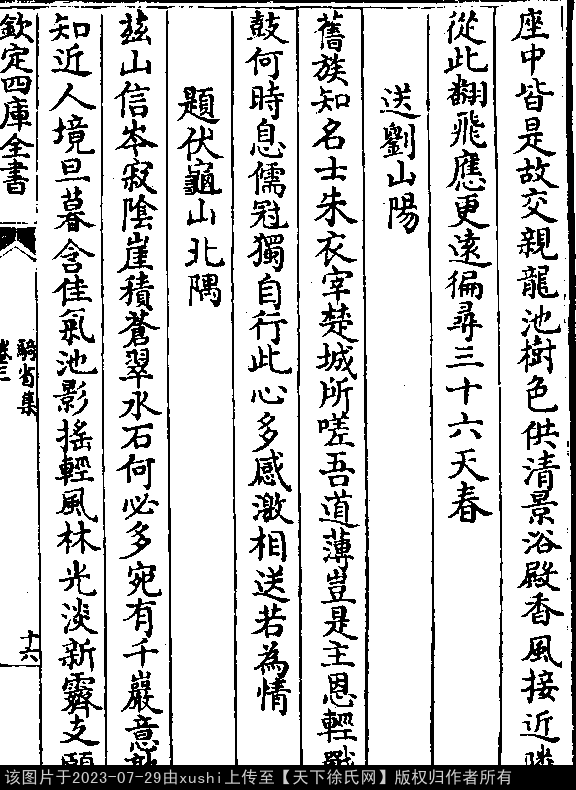 座中皆是故交親龍池樹色供清景浴殿香風接近
從此翻飛應更遠徧尋三十六天春
送劉山陽
舊族知名士朱衣宰楚城所嗟吾道薄豈是主恩輕
鼓何時息儒冠獨自行此心多感激相送若為情
題伏龜山北隅
兹山信岑寂陰崖積蒼翠水石何必多宛有千巖意
知近人境旦暮含佳氣池影揺輕風林光淡新霽支
欽定四庫全書
騎省集
卷三
十六
该图片于2023-07-29由xushi上传至【天下徐氏网】版权归作者所有